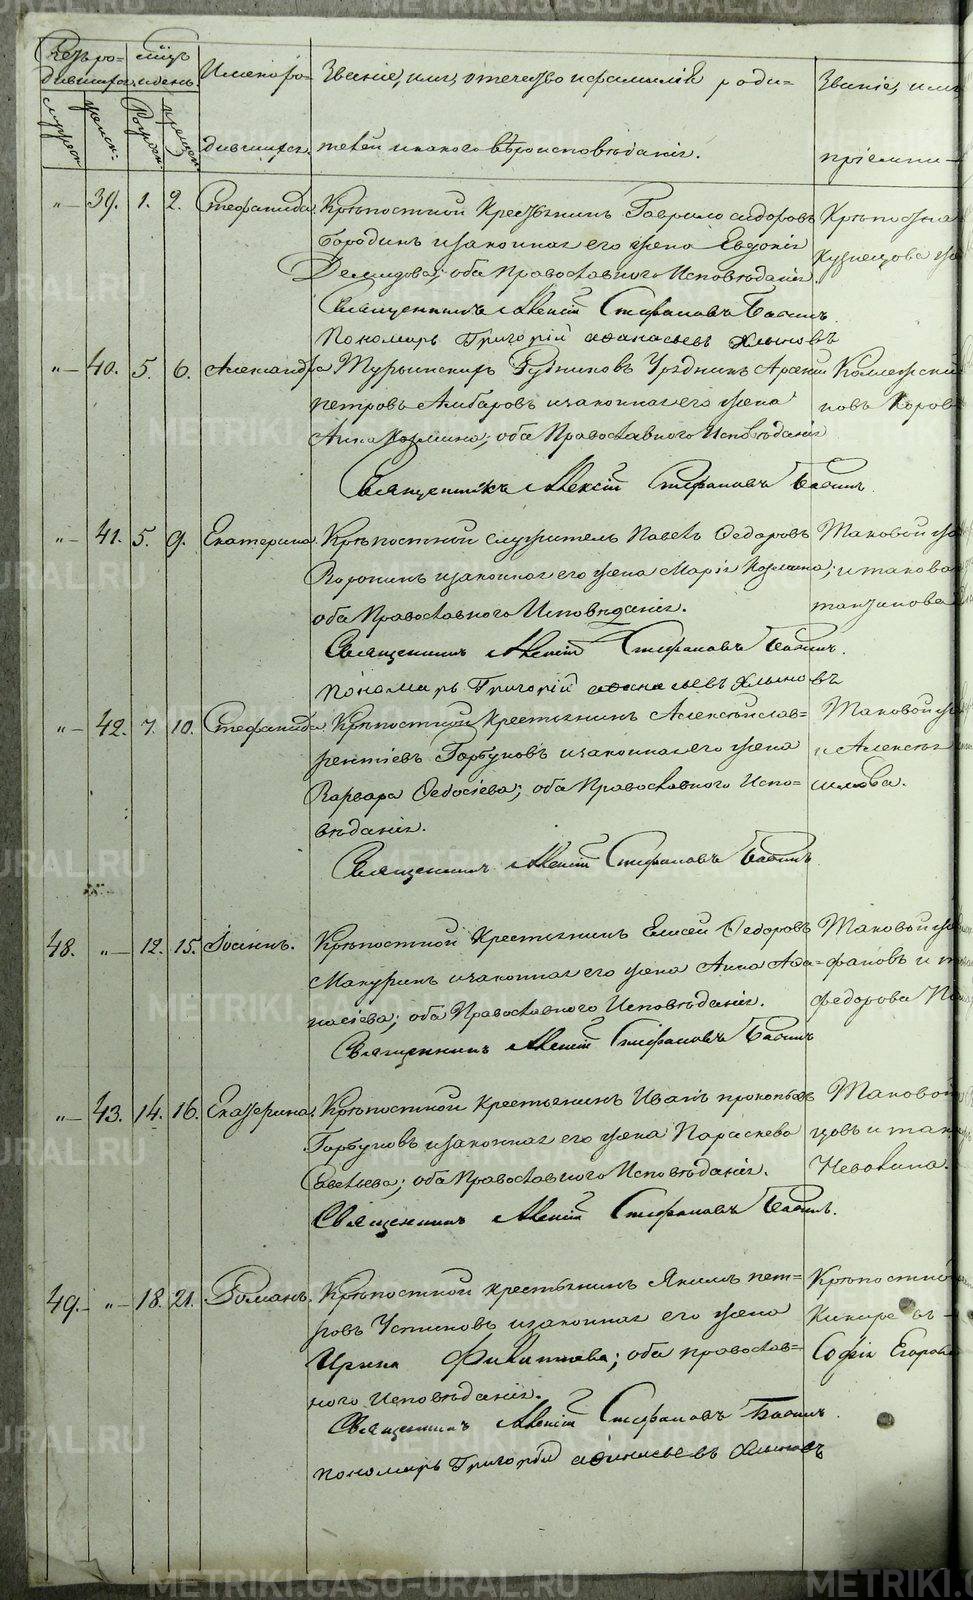 Счетъ ро- мѣсяцъ
дившихся. и день.
мужеск женск: Рожден крещен
Имена ро-
дившихся.
Званіе, имя, отечество и фамилія роди-
телей и какого вѣроисповѣданія.
Званіе, имя
пріемни-
"— 39. 1. 2. Стефанида. Крѣпостной Крестьянинъ Гаврило Сидоровъ
Бородинъ и законная его жена Евдокія
Демидова; оба Православнаго Исповѣданія.
Священникъ Алексій Стефановъ Бабинъ
Пономарь Григорій Афанасьевъ Хлыновъ
Крѣпостна
Кузнецова
"— 40. 5. 6. Александра Турьинскихъ Рудниковъ Урядникъ Арсеній
Петровъ Амбаровъ и законная его жена
Анна Козмина; оба Православнаго Исповѣданія
Священникъ Алексій Стефановъ Бабинъ.
Коллежскій
новъ Коров
"— 41. 5. 9. Екатерина. Крѣпостной служитель Павелъ Ѳедоровъ
Воронинъ и законная его жена Марія Козмина;
оба Православнаго Исповѣданія.
Священникъ Алексій Стефановъ Бабинъ.
Пономарь Григорій Афанасьевъ Хлыновъ
Таковой же
и такова
"— 42. 7. 10. Стефанида. Крѣпостной Крестьянинъ Алексѣй Лав-
рентіевъ Горбуновъ и законная его жена
Варвара Ѳедосіева; оба Православнаго Испо-
вѣданія.
Священникъ Алексій Стефановъ Бабинъ
Таковой же
и Алексѣя
шлова.
48. "— 12. 15. Іоаннъ. Крѣпостной Крестьянинъ Елисей Ѳедоровъ
Макуринъ и законная его жена Анна Афа-
насіева; оба Православнаго Исповѣданія.
Священникъ Алексій Стефановъ Бабинъ
Таковой же
фановъ и т
Федорова
"— 43. 14. 16. Екатерина. Крѣпостной Крестьянинъ Иванъ Прокопьевъ
Горбуновъ и законная его жена Параскева
Савельева; оба Православнаго Исповѣданія.
Священникъ Алексій Стефановъ Бабинъ.
Таковой
цовъ и так
Чевокина.
49.— "— 18. 21. Романъ. Крѣпостной Крестьянинъ Якимъ Пет-
ровъ Устиновъ и законная его жена
Ирина Филиппова; оба Православ-
наго Исповѣданія.
Священникъ Алексій Стефановъ Бабинъ
Пономарь Григорій Афанасьевъ Хлыновъ
Крѣпостной
Софія Егоров
METRIKI.GASO-URAL.RU